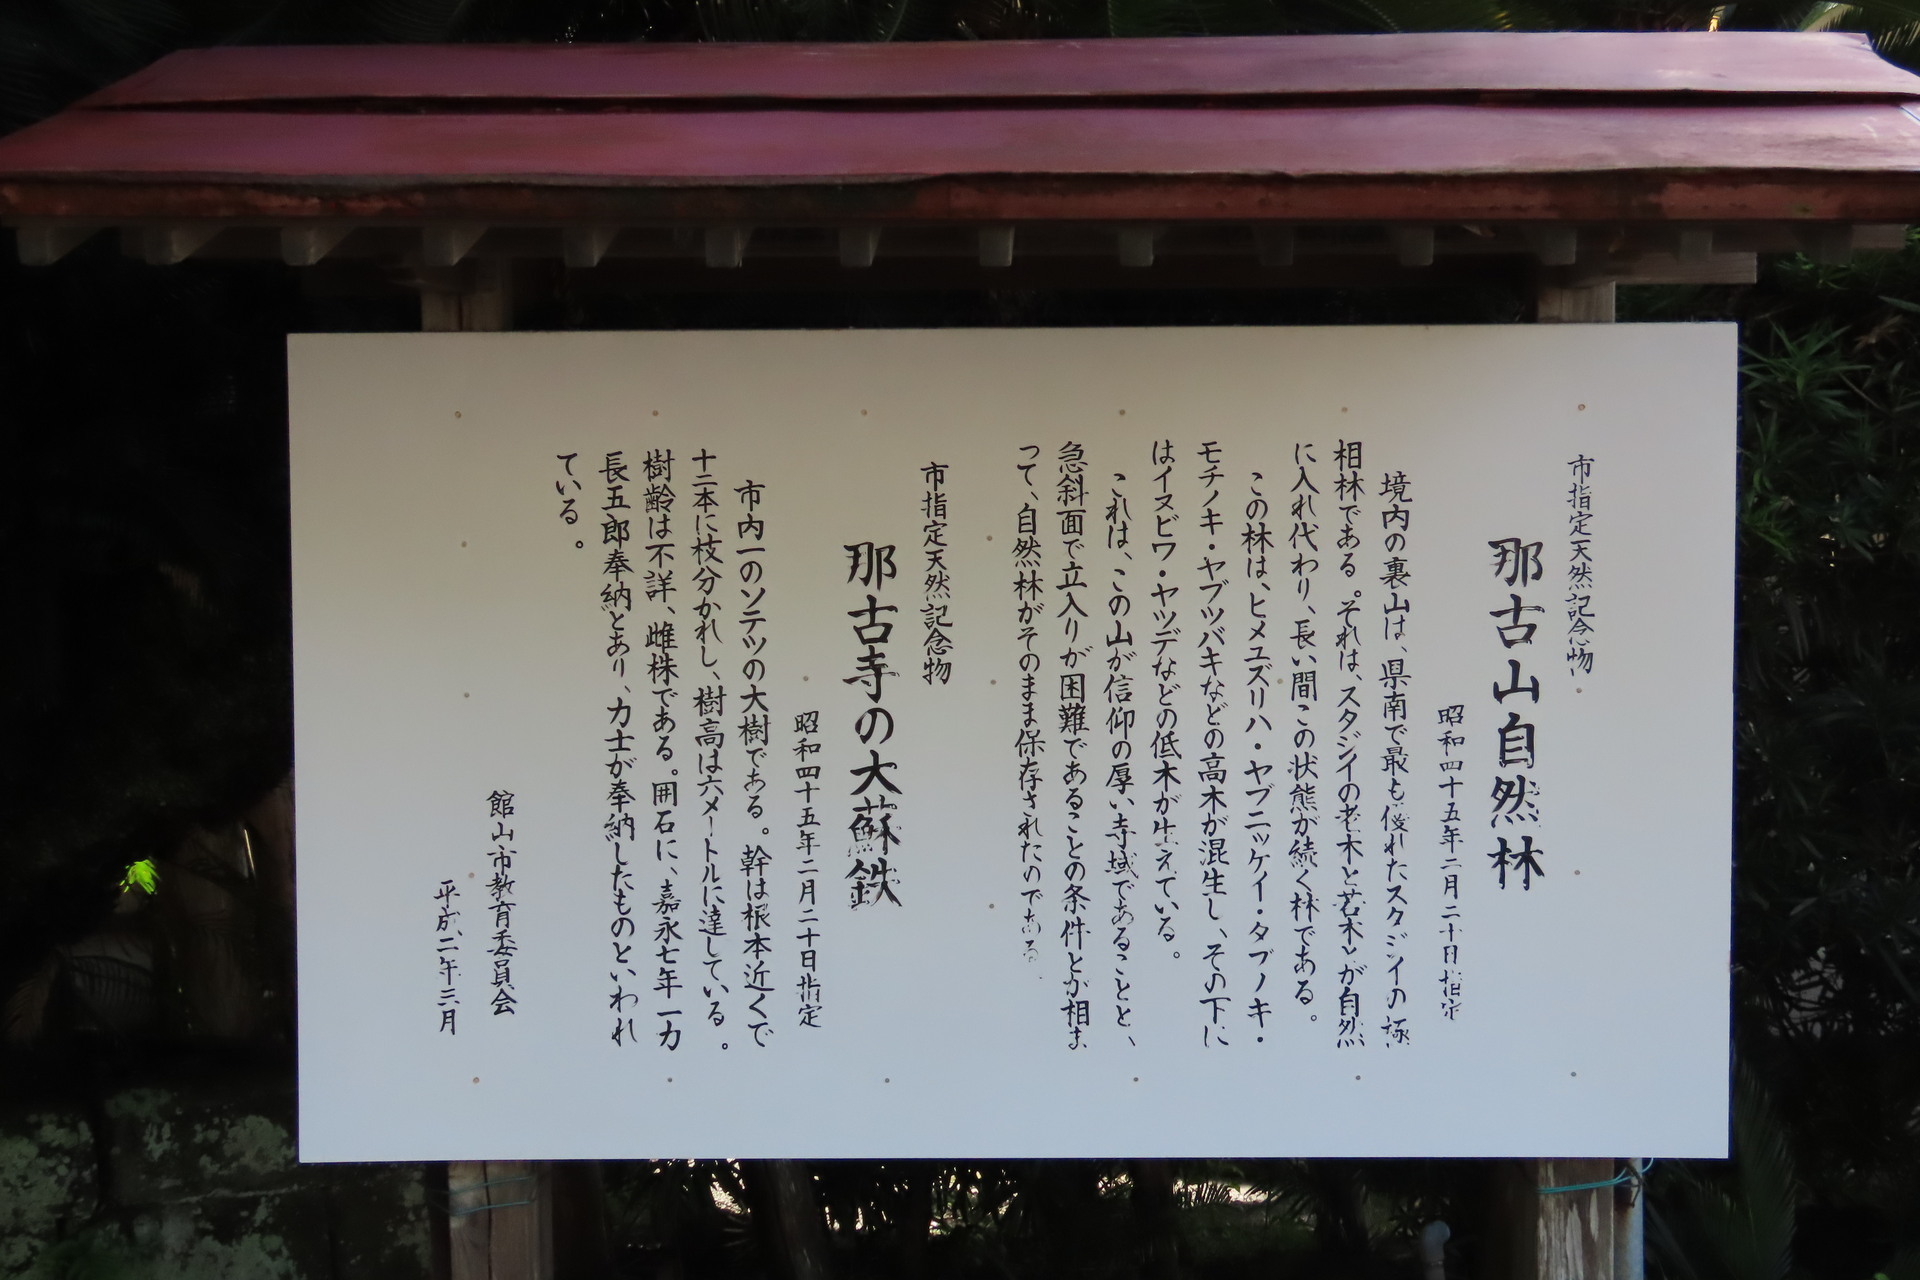 市指定天然記念物
那古山自然林
昭和四十五年二月二十日指定
境内の裏山は、県南で最も優れたスダジイの極
相林である。それは、スタジイの老木と若木とが自然
に入れ代わり、長い間この状態が続く林である。
この林は、ヒメユズリハ・ヤブニッケイ・タブノキ・
モチノキ・ヤブツバキなどの高木が混生し、その下に
はイヌビワ・ヤツデなどの低木が生えている。
これは、この山が信仰の厚い寺域であることと、
急斜面で立入りが困難であることの条件とが相ま
って、自然林がそのまま保存されたのである。
市指定天然記念物
那古寺の大蘇鉄
昭和四十五年二月二十日指定
市内一のソテツの大樹である。幹は根本近くで
十二本に枝分かれし、樹高は六メートルに達している。
樹齢は不詳、雌株である。囲石に、嘉永七年一力
長五郎奉納とあり、力士が奉納したものといわれ
ている。
館山市教育委員会
平成二年三月